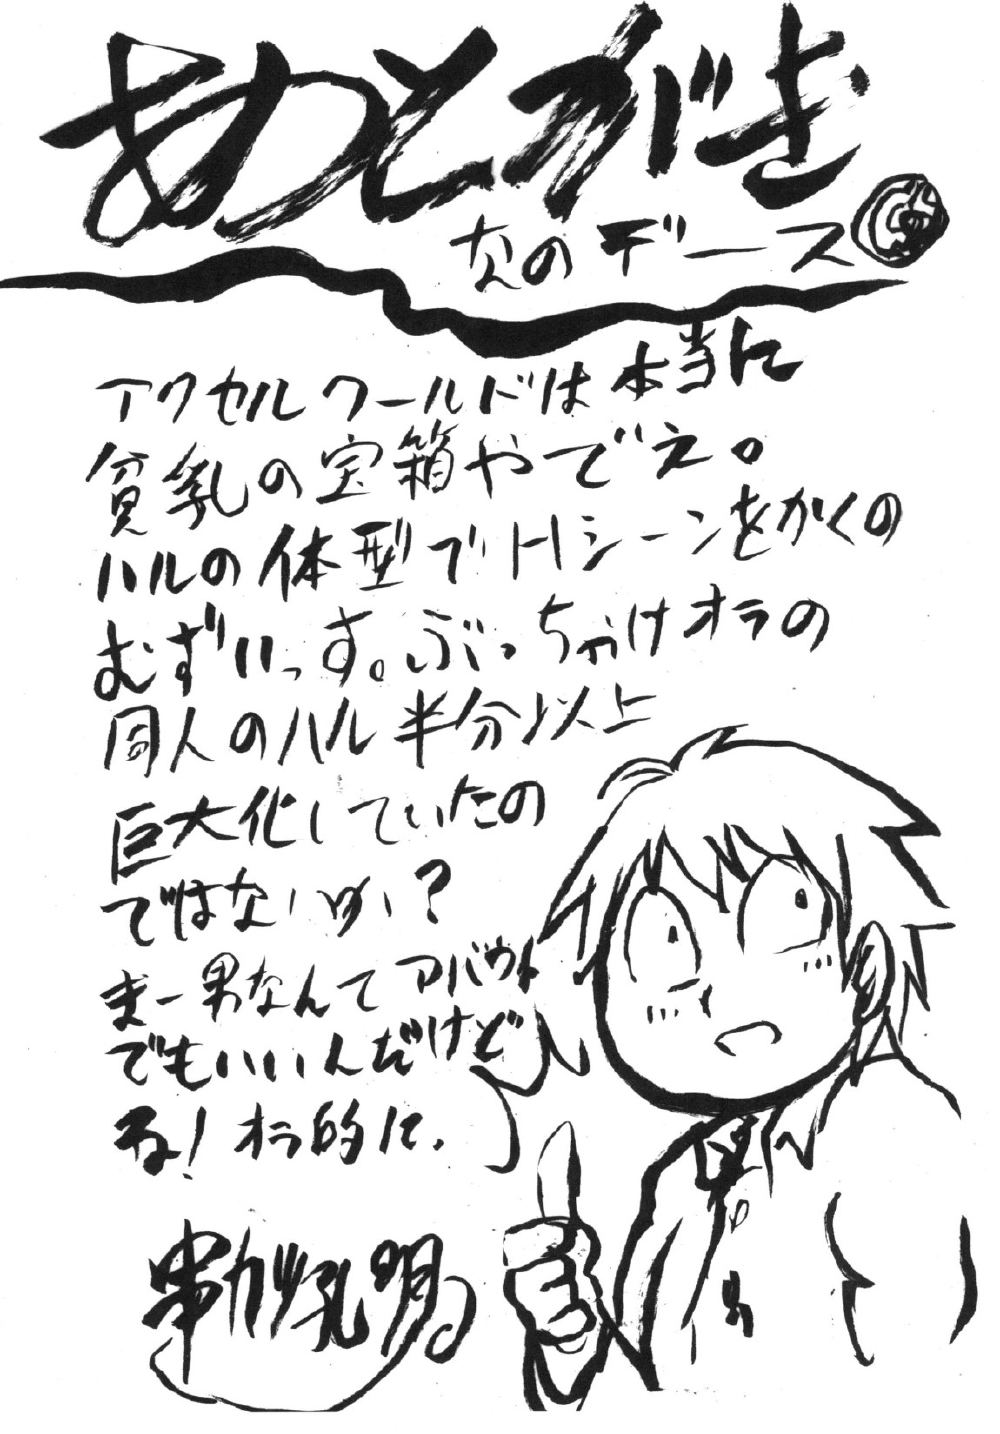 あとがき
なのデース
アクセルワールドは本当に
貧乳の宝箱やでぇ。
ハルの体型でHシーンをかくの
むずいっす。ぶっちゃけオラの
同人のハル半分以上
巨大化していたの
ではないかい?
まー男なんてアバウト
でもいいんだけど
ね!オラ的に、
串カツ孔明